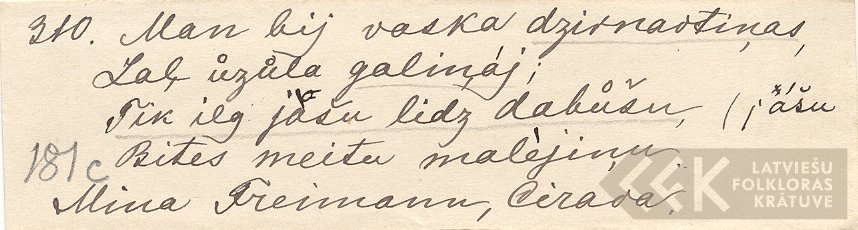 310. Man bij vaska dzirnavtiņas,
Zaļ ůzůla galiņáj;
Tik ilg jāšu lidz dabůšu, (jāšu
Bites meitu malèjiņu.
181c
Mina Freimann, Cirava.
LATVIEŠU
FOLKLORAS
KRĀTUVE